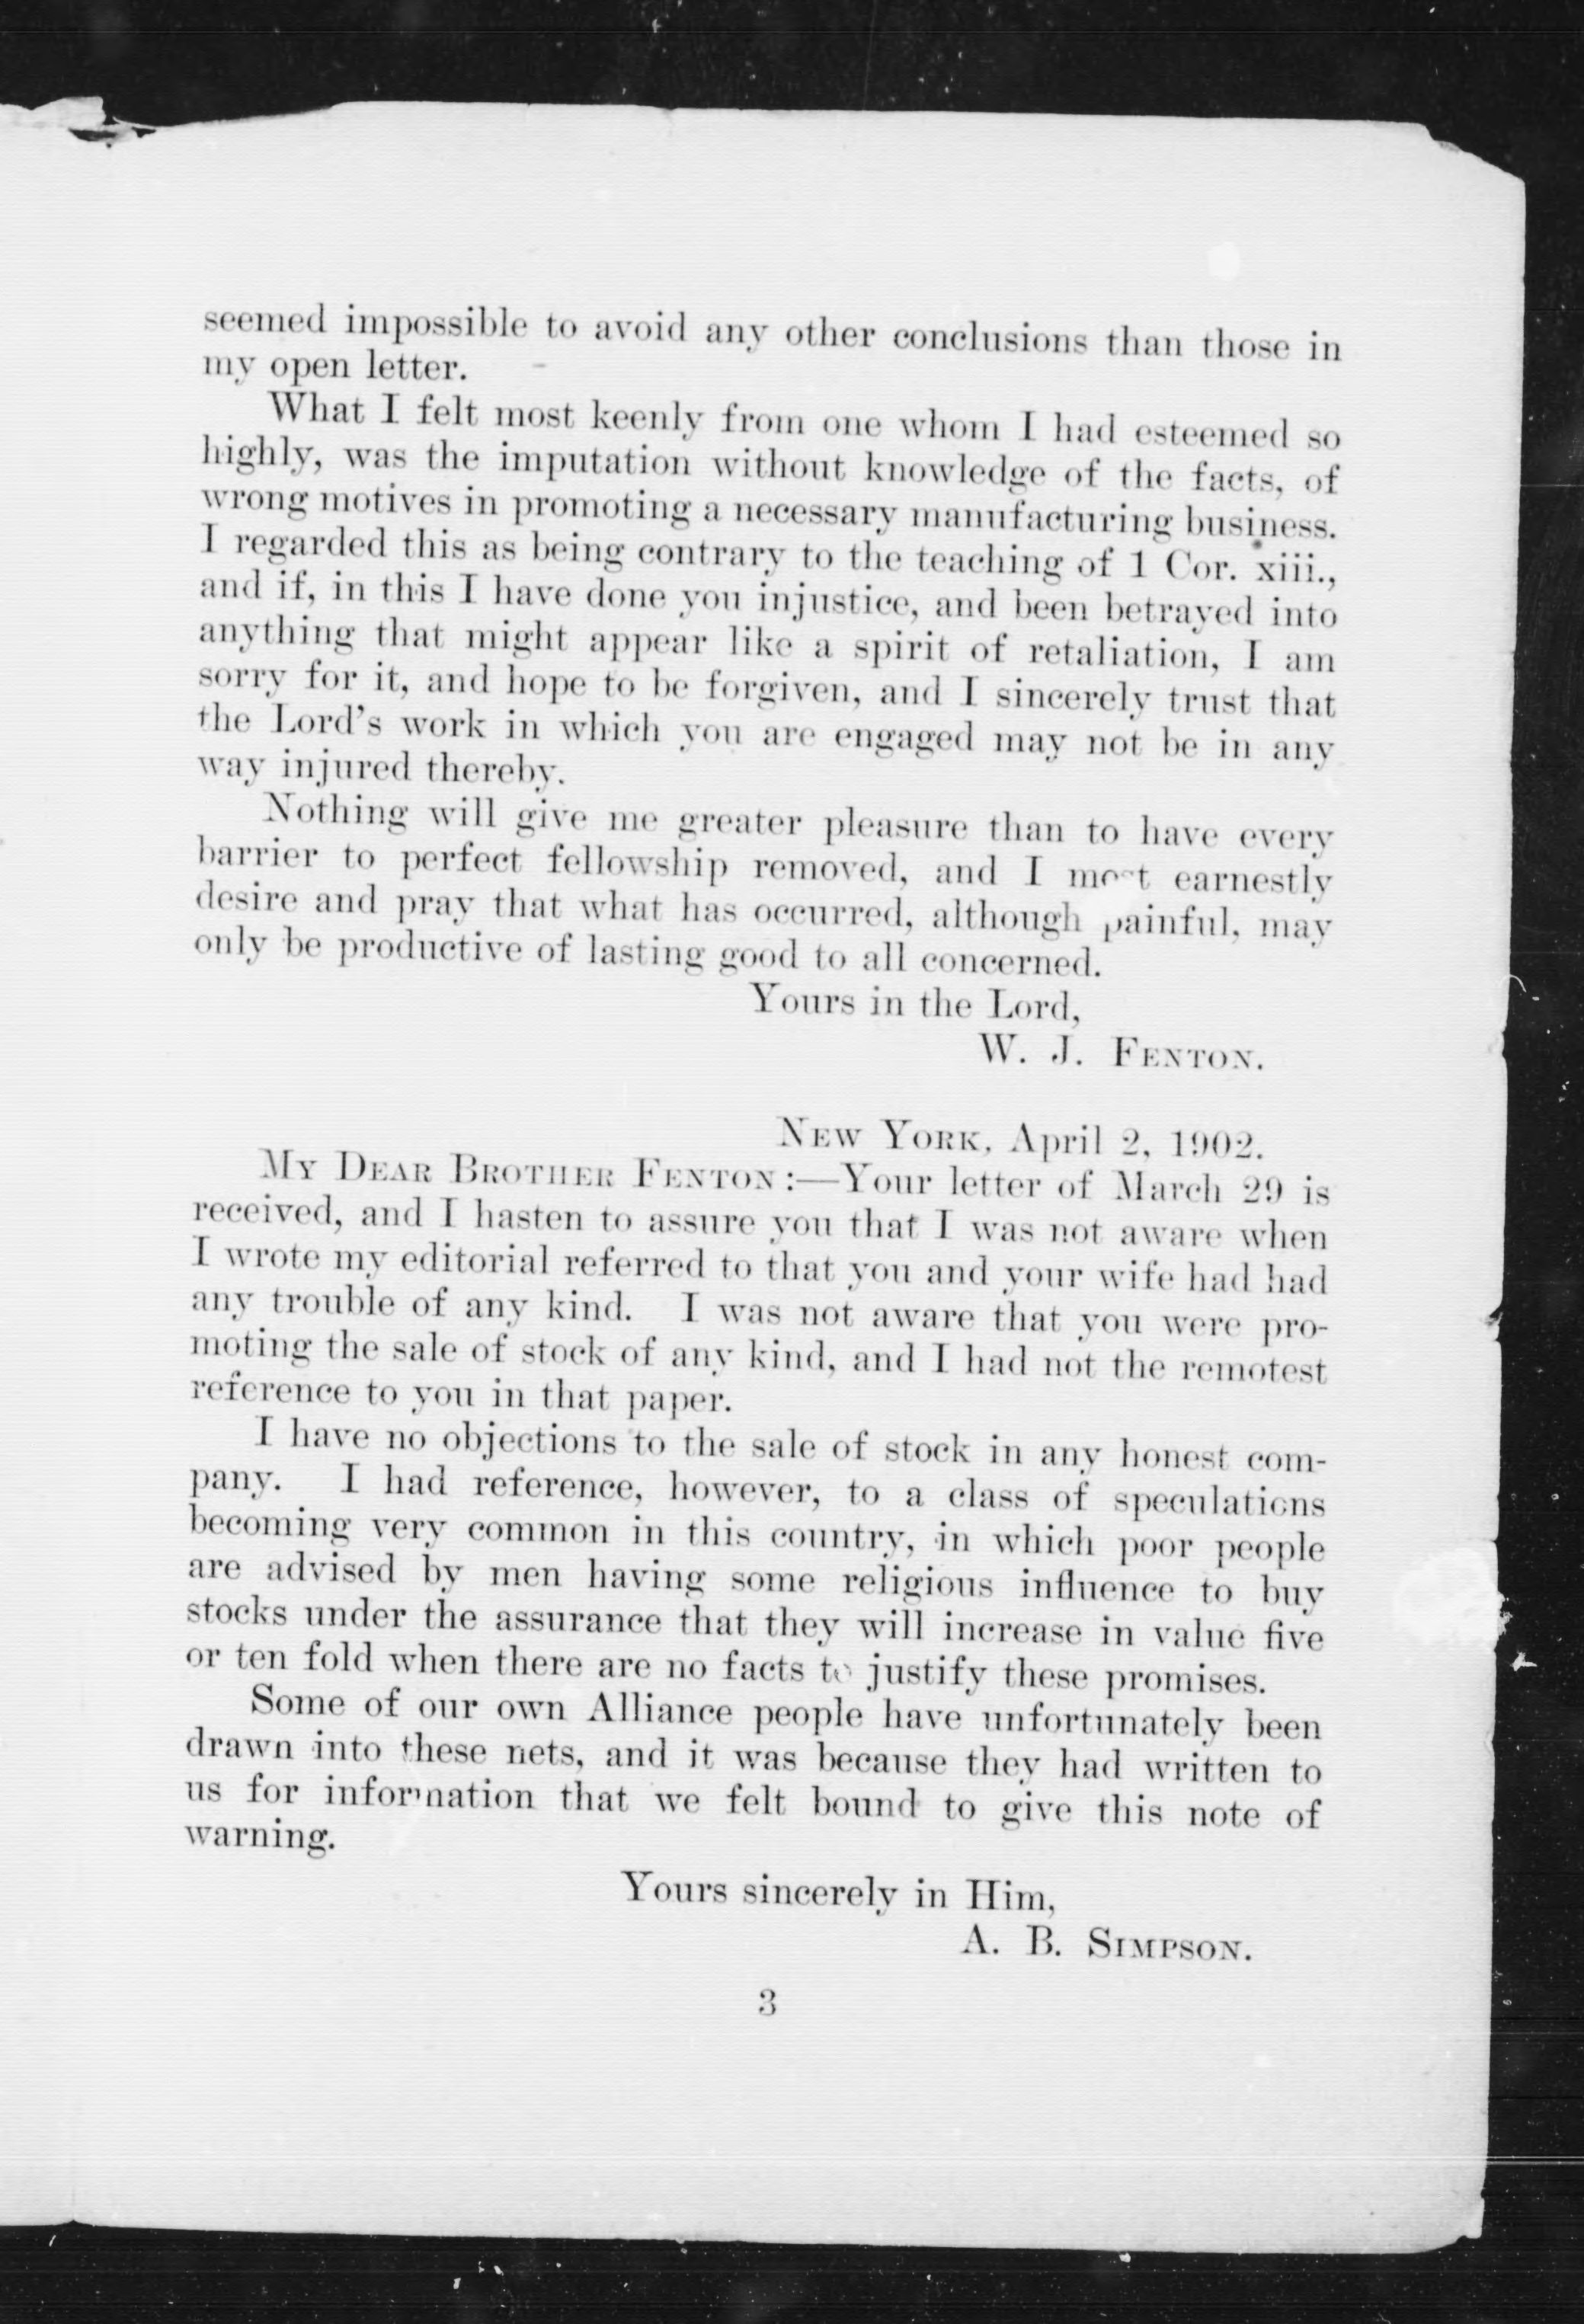 seemed impossible to avoid any other conclusions than those in
my open letter.
What I felt most keenly from one whom I had esteemed so
highly, was the imputation without knowledge of the facts, of
wrong motives in promoting a necessary manufacturing business.
I regarded this as being contrary to the teaching of 1 Cor. xiii.,
and if, in this I have done you injustice, and been betrayed into
anything that might appear like a spirit of retaliation, I am
sorry for it, and hope to be forgiven, and I sincerely trust that
the Lord's work in which you are engaged may not be in any
way injured thereby.
Nothing will give me greater pleasure than to have every
barrier to perfect fellowship removed, and I most earnestly
desire and pray that what has occurred, although painful, may
only be productive of lasting good to all concerned.
Yours in the Lord,
W. J. FENTON.
NEW YORK, April 2, 1902.
MY DEAR BROTHER FENTON:—Your letter of March 29 is
received, and I hasten to assure you that I was not aware when
I wrote my editorial referred to that you and your wife had had
any trouble of any kind. I was not aware that you were pro-
moting the sale of stock of any kind, and I had not the remotest
reference to you in that paper.
I have no objections to the sale of stock in any honest com-
pany. I had reference, however, to a class of speculations
becoming very common in this country, in which poor people
are advised by men having some religious influence to buy
stocks under the assurance that they will increase in value five
or ten fold when there are no facts to justify these promises.
Some of our own Alliance people have unfortunately been
drawn into these nets, and it was because they had written to
us for information that we felt bound to give this note of
warning.
Yours sincerely in Him,
A. B. SIMPSON.
3